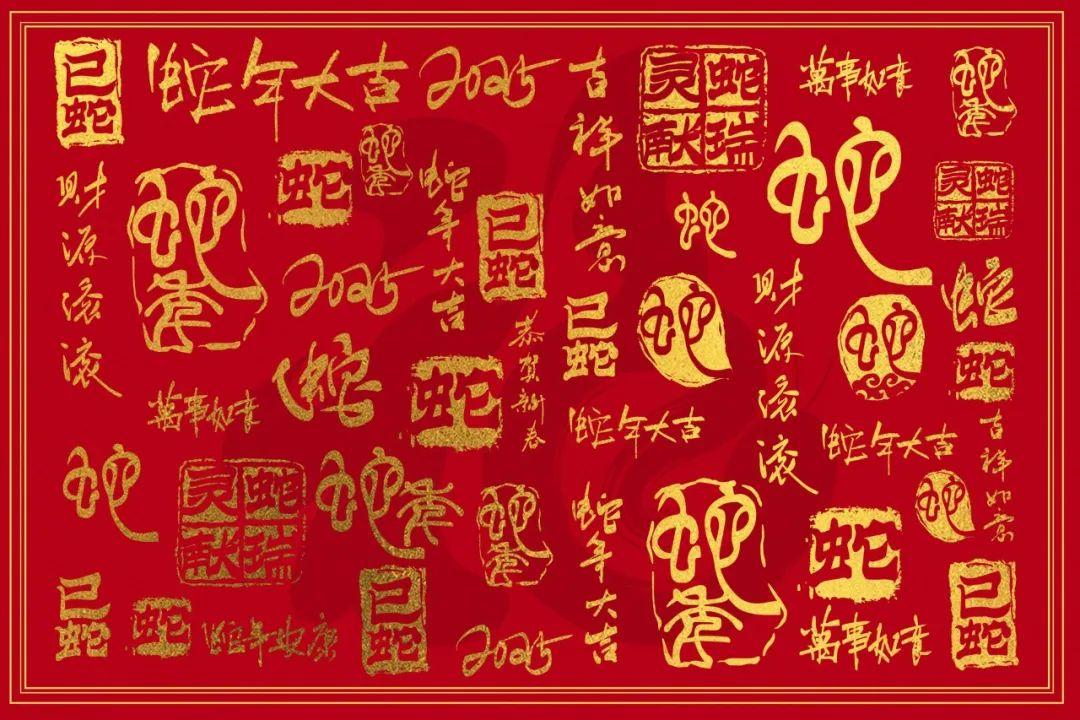 已蛇
蛇年大吉
2025
吉祥如意
灵蛇
献瑞
萬事如意
蛇年
财源滚滚
蛇年
蛇
蛇年
2025
蛇年大吉
已蛇
蛇
蛇
灵蛇
献瑞
蛇
萬事如意
蛇
恭贺新春
已蛇
蛇
财源滚滚
蛇
蛇
蛇
蛇年大吉
蛇年大吉
吉祥如意
蛇
灵蛇
献瑞
蛇年
蛇年
蛇年大吉
蛇年
蛇
蛇
已蛇
蛇
蛇年安康
已蛇
2025
萬事如意
已蛇